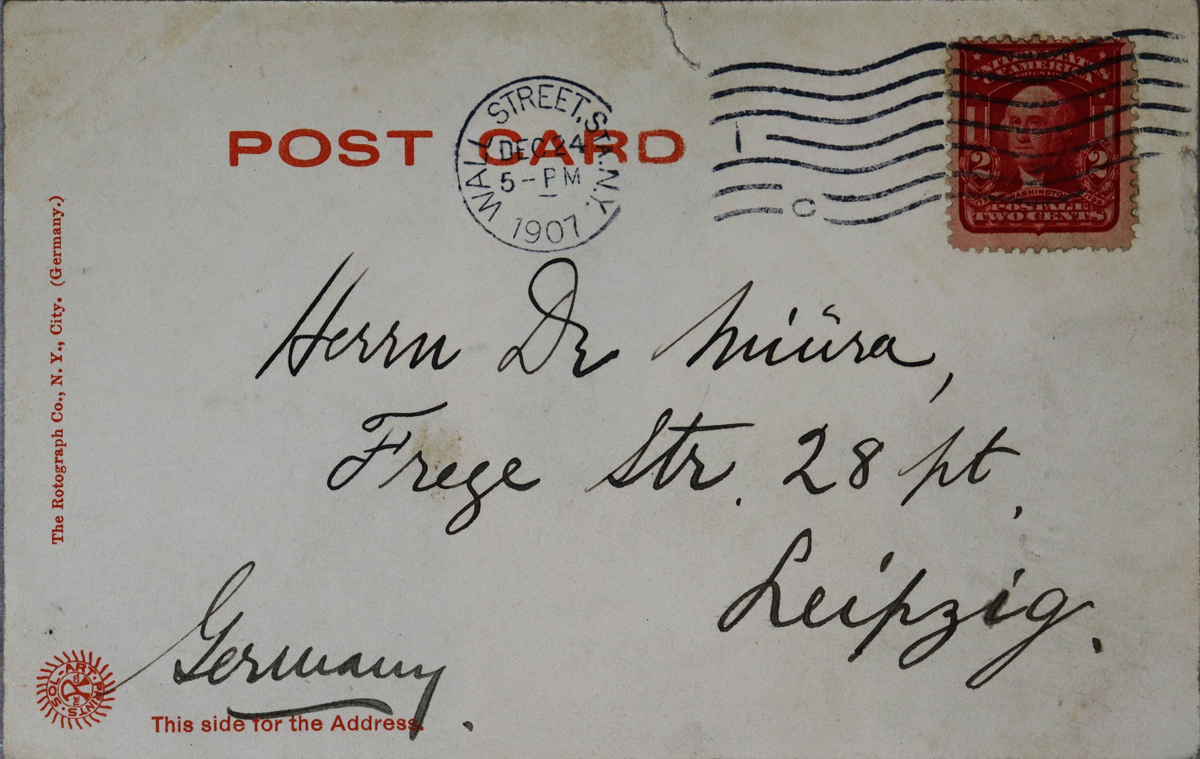 POST CARD
WALL STREET, STA. N.Y.
DEC 24
5-PM
1907
I
C
UNITED STATES
OF AMERICA
2 2
WASHINGTON
POSTAGE
TWO CENTS
Herrn Dr Miūra,
Frege Str. 28 pt,
Leipzig.
Germany.
The Rotograph Co., N. Y., City. (Germany.)
SOL-ART PRINTS
This side for the Address.